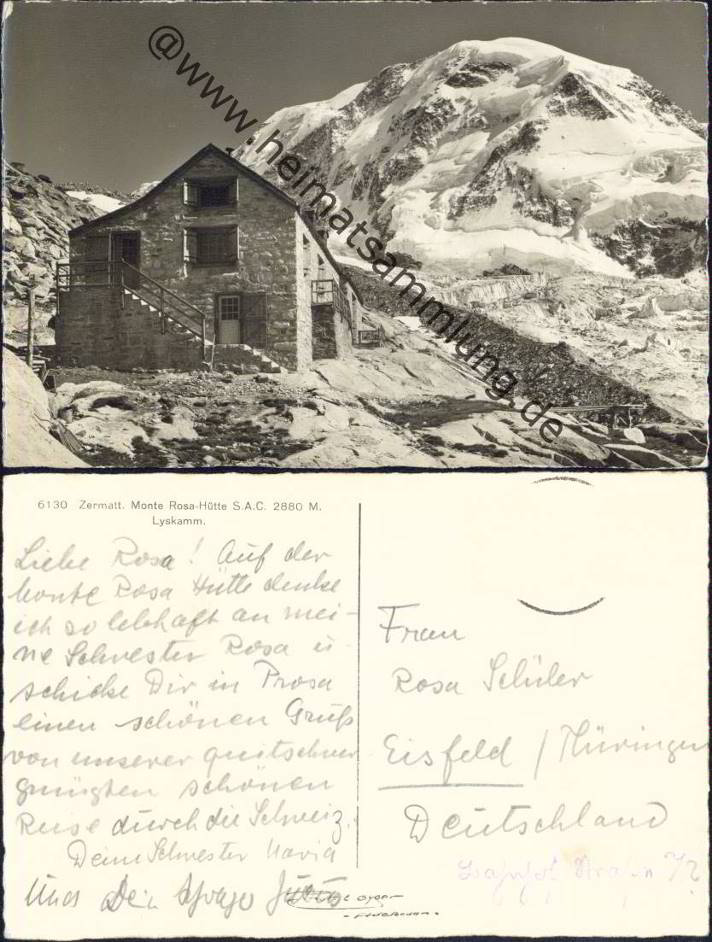 @www.heimatsammlung.de
6130 Zermatt. Monte Rosa-Hütte S.A.C. 2880 M.
Lyskamm.
Liebe Rosa! Auf der
Monte Rosa Hütte denke
ich so lebhaft an mei-
ne Schwester Rosa u
schicke Dir in Prosa
einen schönen Gruß
von unserer quitschver
gnügten schönen
Reise durch die Schweiz.
Deine Schwester Maria
Und Dein
Frau
Rosa Schüler
Eisfeld / Thüringen
Deutschland